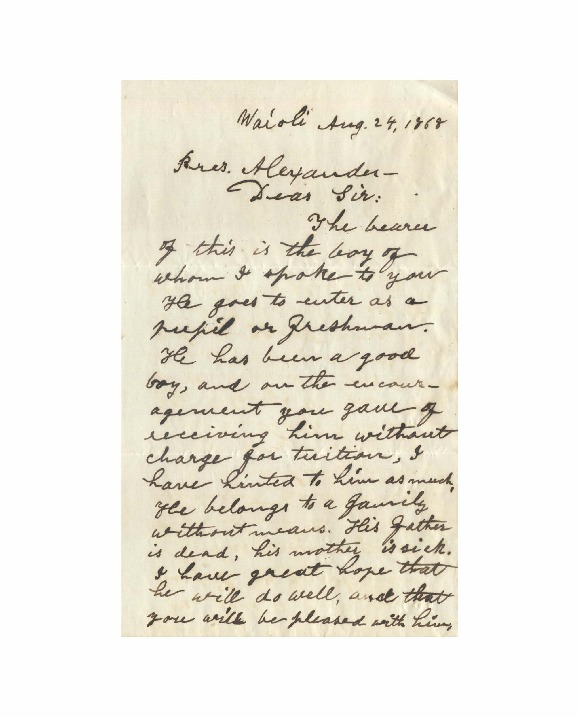 Waioli Aug. 24, 1868
Pres. Alexander—
Dear Sir:
The bearer
of this is the boy of
whom I spoke to you
He goes to enter as a
pupil or freshman.
He has been a good
boy, and on the encour-
agement you gave of
receiving him without
charge for tuition, I
have hinted to him as much.
He belongs to a family
without means. His father
is dead, his mother is sick.
I have great hope that
he will do well, and that
you will be pleased with him,